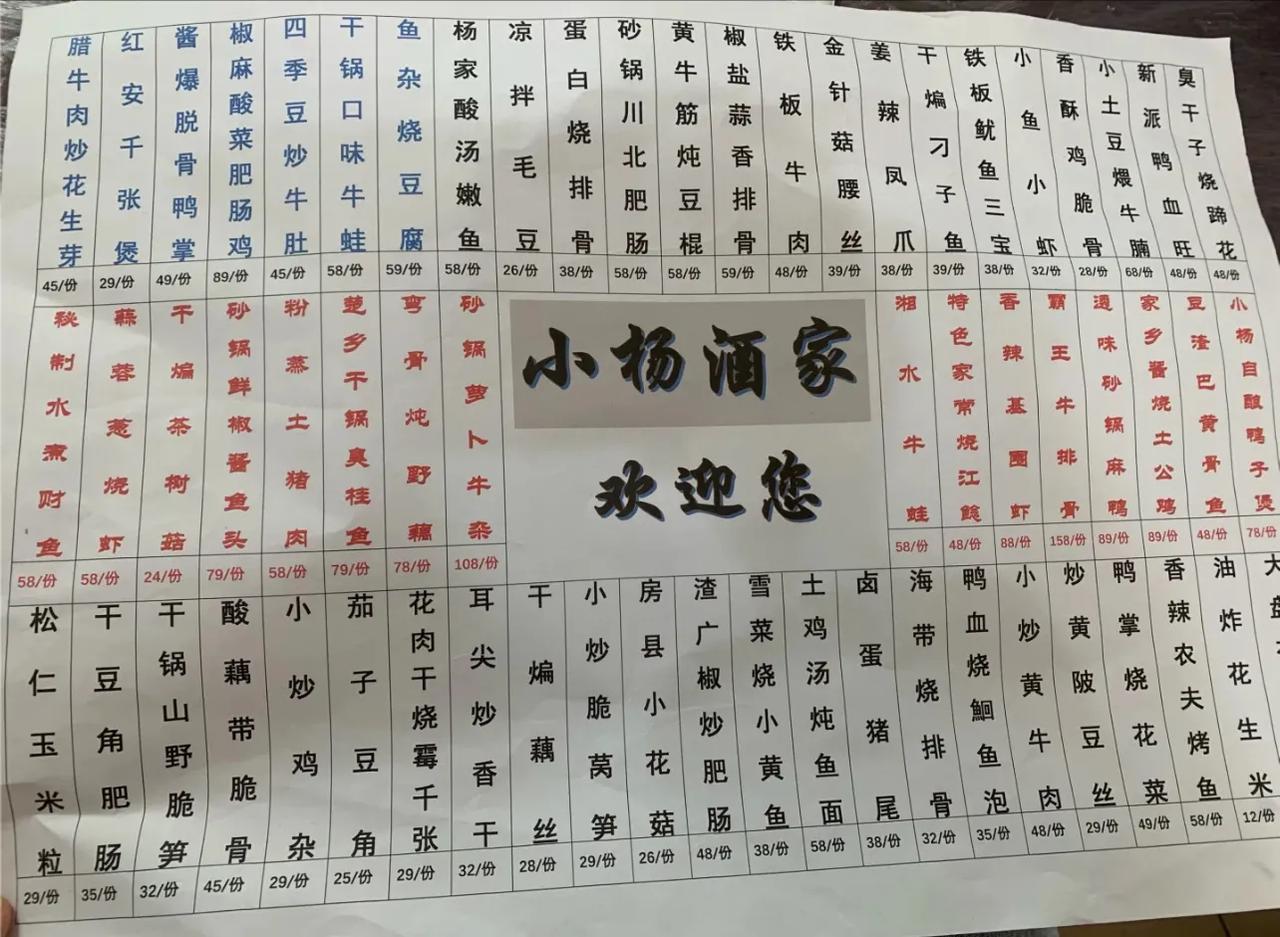 腊牛肉炒花生芽
45/份
红安千张煲
29/份
酱爆脱骨鸭掌
49/份
椒麻酸菜肥肠鸡
89/份
四季豆炒牛肚
45/份
干锅口味牛蛙
58/份
鱼杂烧豆腐
59/份
杨家酸汤嫩鱼
58/份
凉拌毛豆
26/份
蛋白烧排骨
38/份
砂锅川北肥肠
58/份
黄牛筋炖豆棍
58/份
椒盐蒜香排骨
59/份
铁板牛肉
48/份
金针菇腰丝
39/份
姜辣凤爪
38/份
干煸刁子鱼
39/份
铁板鱿鱼三宝
38/份
小鱼小虾
32/份
香酥鸡脆骨
28/份
小土豆煨牛腩
68/份
新派鸭血旺
48/份
臭干子烧蹄花
48/份
秘制水煮财鱼
58/份
蒜蓉葱烧虾
58/份
干煸茶树菇
24/份
砂锅鲜椒酱鱼头
79/份
粉蒸土猪肉
58/份
楚乡干锅臭桂鱼
79/份
弯骨炖野藕
78/份
砂锅萝卜牛杂
108/份
小杨酒家
欢迎您
湘水牛蛙
58/份
特色家常烧江鲶
48/份
香辣基围虾
88/份
霸王牛排骨
158/份
道味砂锅麻鸭
89/份
家乡酱烧土公鸡
89/份
豆渣巴黄骨鱼
48/份
小杨自酿鸭子煲
78/份
松仁玉米粒
29/份
干豆角肥肠
35/份
干锅山野脆笋
32/份
酸藕带脆骨
45/份
小炒鸡杂
29/份
茄子豆角
25/份
花肉干烧霉千张
29/份
耳尖炒香干
32/份
干煸藕丝
28/份
小炒脆莴笋
29/份
房县小花菇
26/份
渣广椒炒肥肠
48/份
雪菜烧小黄鱼
38/份
土鸡汤炖鱼面
58/份
卤蛋猪尾
38/份
海带烧排骨
32/份
鸭血烧鮰鱼泡
35/份
小炒黄牛肉
48/份
炒黄陂豆丝
29/份
鸭掌烧花菜
49/份
香辣农夫烤鱼
58/份
油炸花生米
12/份
大盘